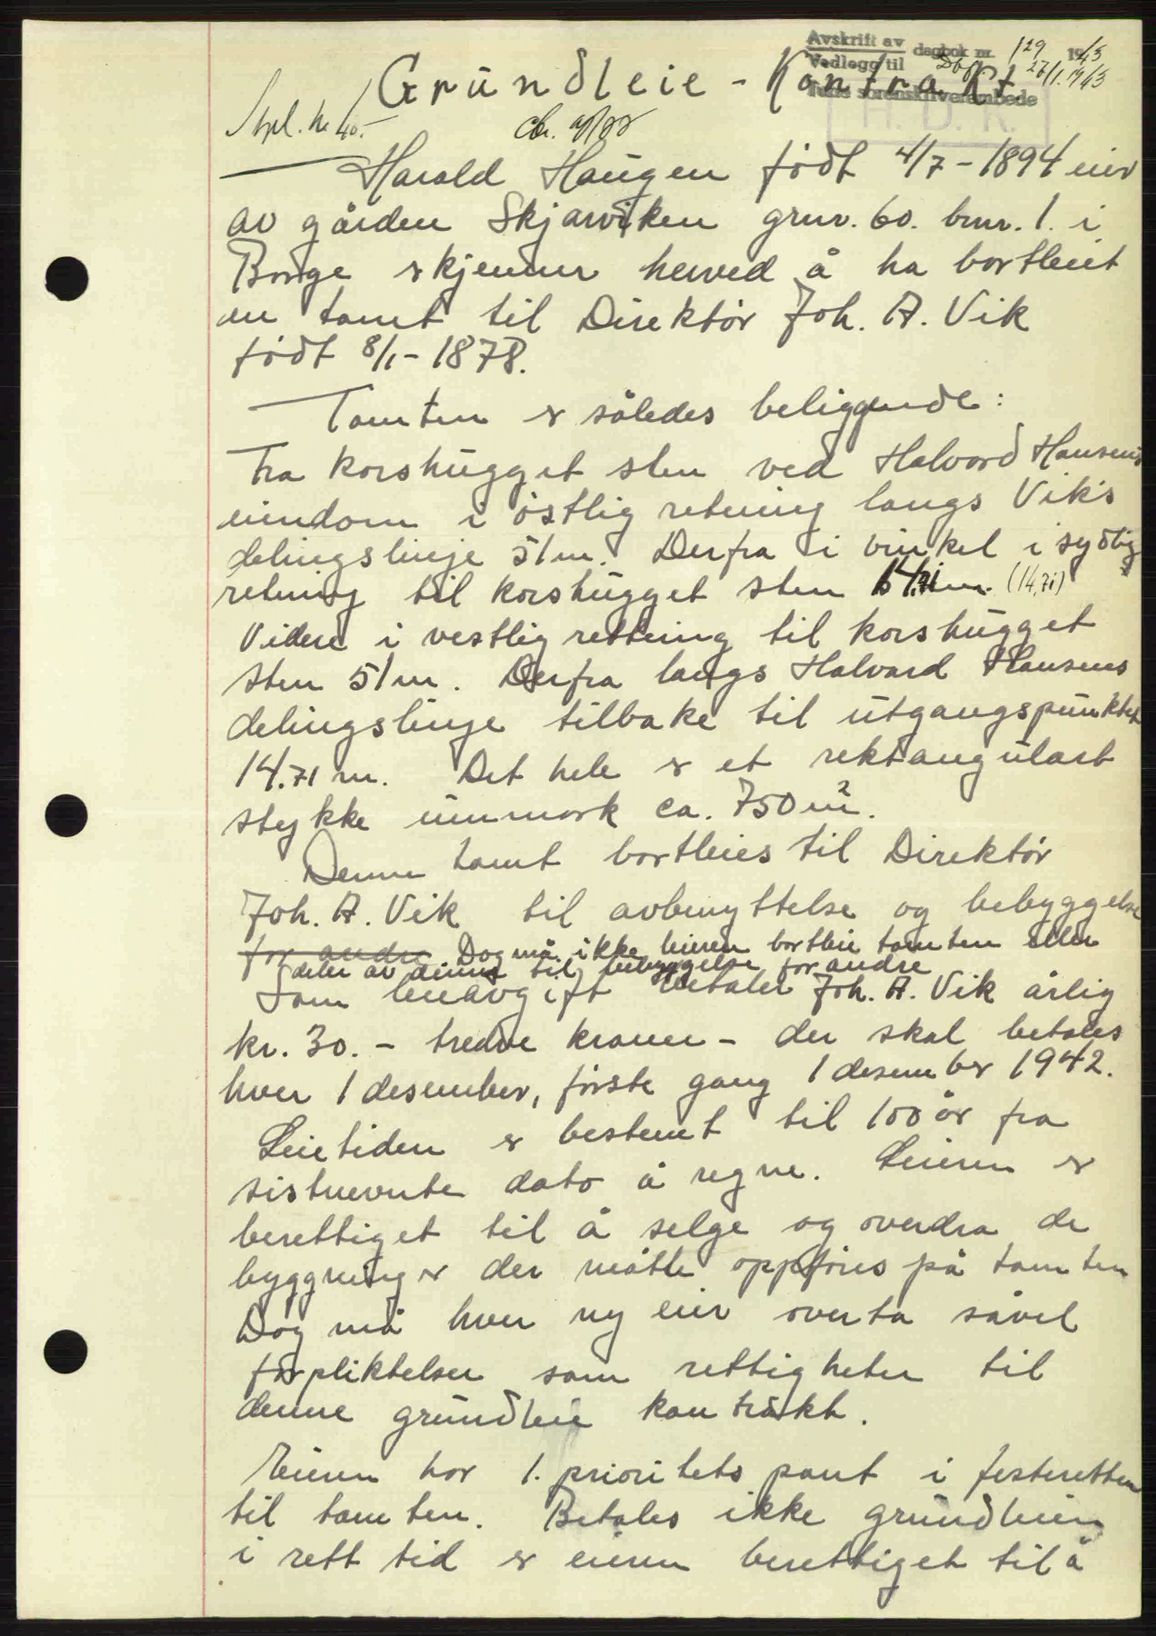 Avskrift av dagbok nr. 129 1943
Vedlegg til 27/1.1943
Tune sorenskriverembede
H. D. K.
Grunnleie - Kontrakt
Stpl. kr 40.-
Harald Haugen født 4/7-1894 eier
av gården Skjærviken grnr. 60. brnr. 1. i
Borge skjenner herved å ha bortleiet
en tomt til Direktør Joh. A. Vik
født 8/1-1878.
Tomten er således beliggende:
Fra korshugget sten ved Halvard Hansens
eiendom i østlig retning langs Vik's
delingslinje 51m. Derfra i vinkel i sydlig
retning til korshugget sten 14.71m. (14,71)
Videre i vestlig rettning til korshugget
sten 51m. Derfra langs Halvard Hansens
delingslinje tilbake til utgangspunktet
14.71 m. Det hele er et rektangulært
stykke innmark ca. 750 m2.
Denne tomt bortleies til Direktør
Joh. A. Vik til avbenyttelse og bebyggelse
for andre Dog må ikke leieren bortleie tomten eller
deler av denne til bebyggelse for andre
Som leieavgift betaler Joh. A. Vik årlig
kr. 30. - tredve kroner - der skal betales
hver 1 desember, første gang 1 desember 1942.
Leietiden er bestemt til 100 år fra
sistnevnte dato å regne. Leieren er
berettiget til å selge og overdra de
byggninger der måtte oppføres på tomten
Dog må hver ny eier overta såvel
forpliktelser som rettigheter til
denne grunnleie kontrakt.
Eieren har 1. prioritets pant i festeretten
til tomten. Betales ikke grunnleien
i rett tid er eieren berettiget til å